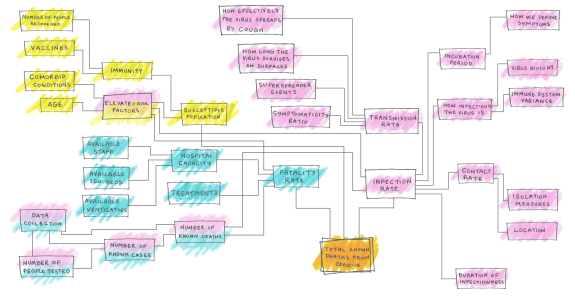 NUMBER OF PEOPLE
RECOVERED
VACCINES
COMORBID
CONDITIONS
AGE
IMMUNITY
ELEVATED RISK
FACTORS
SUSCEPTIBLE
POPULATION
HOW EFFECTIVELY
THE VIRUS SPREADS
BY COUGH
HOW LONG THE
VIRUS SURVIVES
ON SURFACES
SUPERSPREADER
EVENTS
SYMPTOMATICITY
RATIO
TRANSMISSION
RATE
INCUBATION
PERIOD
HOW WE DEFINE
SYMPTOMS
HOW INFECTIOUS
THE VIRUS IS
VIRUS BIOLOGY
IMMUNE SYSTEM
VARIANCE
AVAILABLE
STAFF
AVAILABLE
ICU BEDS
AVAILABLE
VENTILATORS
HOSPITAL
CAPACITY
TREATMENTS
FATALITY
RATE
INFECTION
RATE
CONTACT
RATE
ISOLATION
MEASURES
LOCATION
DURATION OF
INFECTIOUSNESS
DATA
COLLECTION
NUMBER OF
PEOPLE TESTED
NUMBER OF
KNOWN CASES
NUMBER OF
KNOWN DEATHS
TOTAL KNOWN
DEATHS FROM
COVID-19